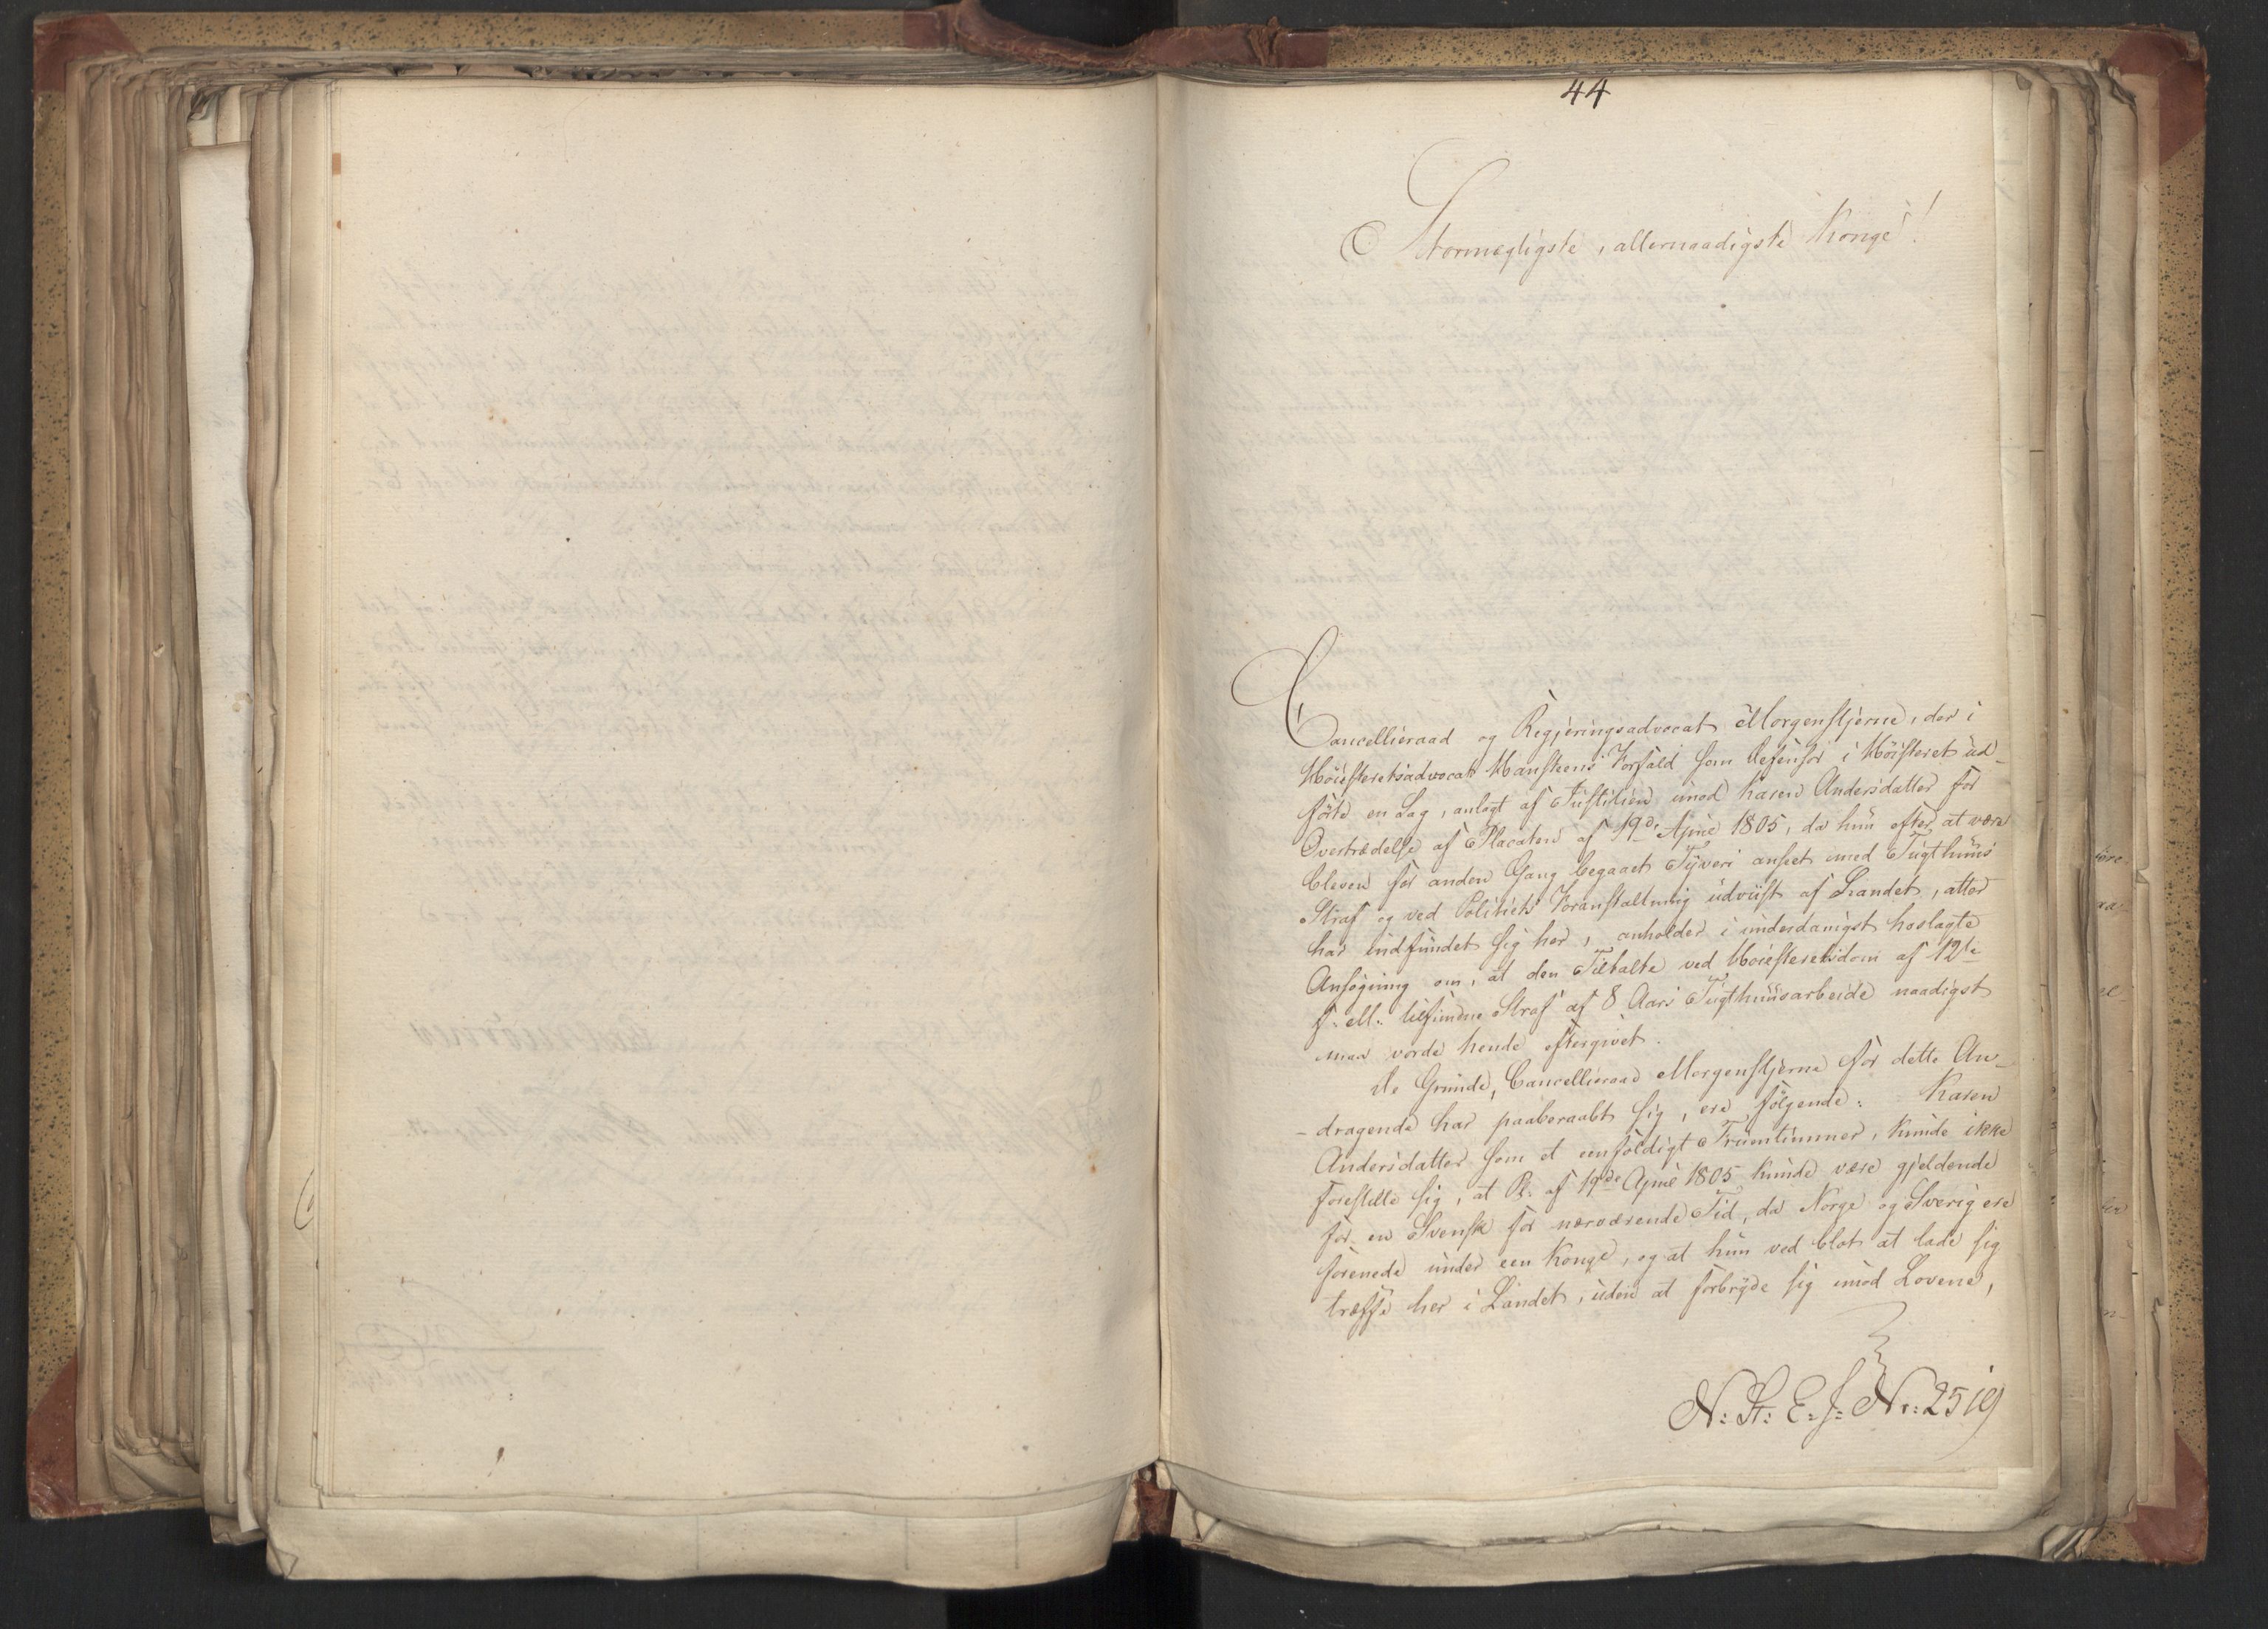 44
Stormægtigste, allernaadigste Konge!
Cancellieraad og Regjeringsadvocat Morgenstjerne, der i
Höiesteretsadvocat Hansteens Forfald som Defensor i Höiesteret ud-
förte en Sag, anlagt af Justitien imod Karen Andersdatter for
Overtrædelse af Placaten af 19de April 1805, da hun efter at være
bleven for anden Gang begaaet Tyveri anseet med Tugthuus
Straf og ved Politiets Foranstaltning udviist af Landet, atter
har indfundet sig her, anholder i underdanigst hoslagte
Ansögning om, at den Tiltalte ved Höiesteretsdom af 12te
f: M: tilfundne Straf af 8 Aars Tugthuusarbeide naadigst
maa vorde hende eftergivet.
De Grunde, Cancellieraad Morgenstjerne for dette An-
-dragende har paaberaabt sig, ere fölgende: Karen
Andersdatter som et eenfoldigt Fruentimmer, kunde ikke
forestille sig, at Pl: af 19de April 1805 kunde være gjeldende
for en Svensk for nærværende Tid, da Norge og Sverig ere
forenede under een Konge, og at hun ved blot at lade sig
træffe her i Landet, uden at forbryde sig imod Lovene,
N: St: E: f: Nr: 2519